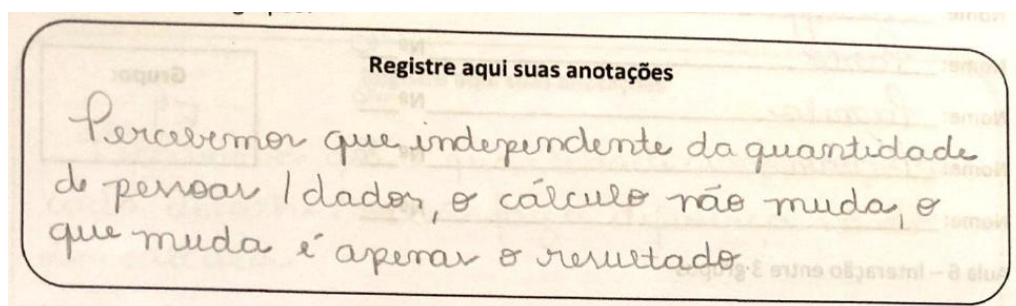 Registre aqui suas anotações
Percebemos que independente da quantidade
de pessoas / dados, o cálculo não muda, o
que muda é apenas o resultado.